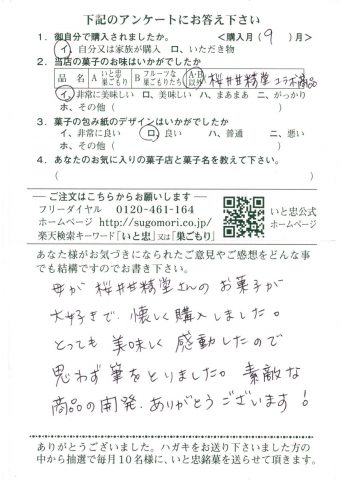 下記のアンケートにお答え下さい
1. 御自分で購入されましたか。 <購入月( 9 )月>
イ、自分又は家族が購入 ロ、いただき物
2. 当店の菓子のお味はいかがでしたか
品 名 A いと忠巣ごもり B フルーツな巣ごもりたち A・B以外 桜井甘精堂コラボ商品
イ、非常に美味しい ロ、美味しい ハ、まあまあ ニ、がっかり
ホ、その他( )
3. 菓子の包み紙のデザインはいかがでしたか
イ、非常に良い ロ、良い ハ、普通 ニ、悪い
ホ、その他( )
4. あなたのお気に入りの菓子店と菓子名を教えて下さい。
( )
ご注文はこちらからお願いします
フリーダイヤル 0120-461-164
ホームページ http://sugomori.co.jp/
楽天検索キーワード「いと忠」又は「巣ごもり」
いと忠公式
ホームページ
あなた様がお気づきになられたご意見やご感想をどんな事
でも結構ですのでお書き下さい。
母が桜井甘精堂さんのお菓子が
大好きで、懐しく購入しました。
とっても美味しく感動したので
思わず筆をとりました。素敵な
商品の開発、ありがとうございます!
ありがとうございました。ハガキをお送り下さいました方の
中から抽選で毎月10名様に、いと忠銘菓を送らせて頂きます。